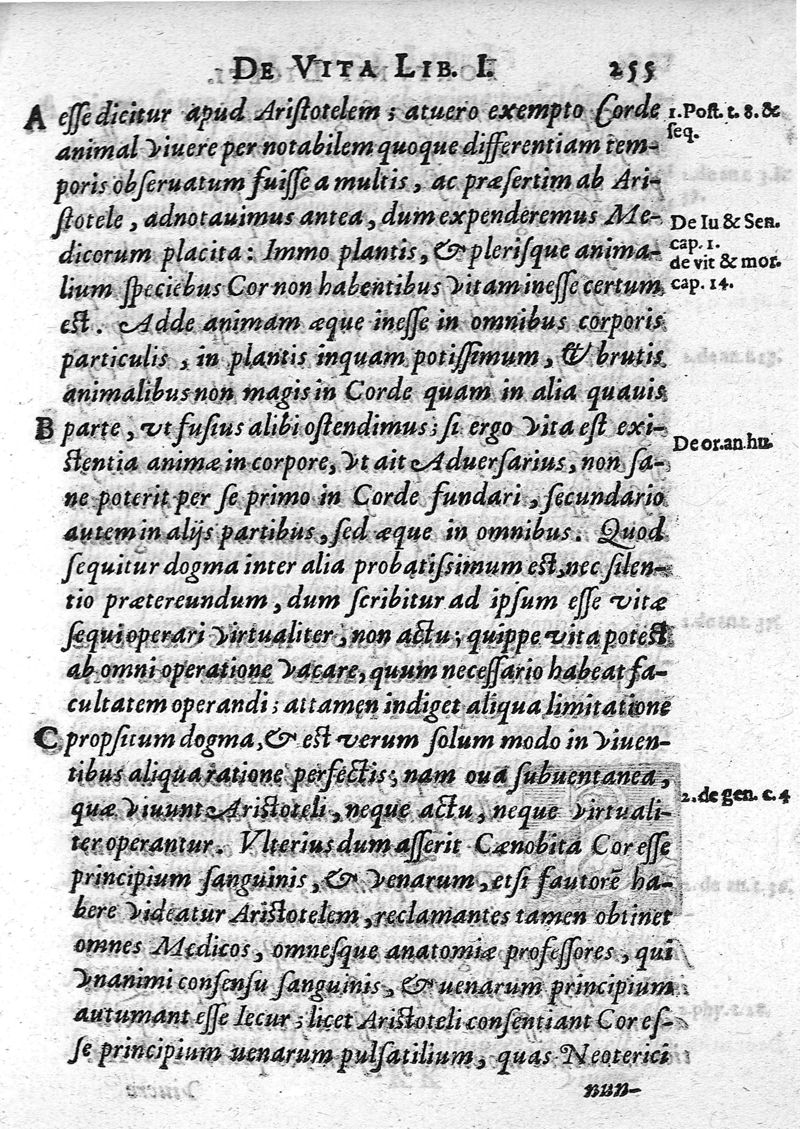 DE VITA LIB. I. 255
A esse dicitur apud Aristotelem; atuero exempto Corde
animal viuere per notabilem quoque differentiam tem-
poris obseruatum fuisse a multis, ac præsertim ab Ari-
stotele, adnotauimus antea, dum expenderemus Me-
dicorum placita: Immo plantis, & plerisque anima-
lium speciebus Cor non habentibus vitam inesse certum
est. Adde animam æque inesse in omnibus corporis
particulis, in plantis inquam potissimum, & brutis
animalibus non magis in Corde quam in alia quauis
B parte, vt fusius alibi ostendimus; si ergo vita est exi-
stentia animæ in corpore, vt ait Aduersarius, non sa-
ne poterit per se primo in Corde fundari, secundario
autem in alijs partibus, sed æque in omnibus. Quod
sequitur dogma inter alia probatissimum est, nec silen-
tio prætereundum, dum scribitur ad ipsum esse vitæ
sequi operari virtualiter, non actu; quippe vita potest
ab omni operatione vacare, quum necessario habeat fa-
cultatem operandi; attamen indiget aliqua limitatione
C propsitum dogma, & est verum solum modo in viuen-
tibus aliqua ratione perfectis; nam oua subuentanea,
quæ viuunt Aristoteli, neque actu, neque virtuali-
ter operantur. Vlterius dum asserit Cænobita Cor esse
principium sanguinis, & venarum, etsi fautorē ha-
bere videatur Aristotelem, reclamantes tamen obtinet
omnes Medicos, omnesque anatomiæ professores, qui
vnanimi consensu sanguinis, & uenarum principium
autumant esse Iecur; licet Aristoteli consentiant Cor es-
se principium uenarum pulsatilium, quas Neoterici
nun-
1. Post. t. 8. &
seq.
De Iu & Sen.
cap. 1.
de vit & mor.
cap. 14.
De or. an. hu.
2. de gen. c. 4